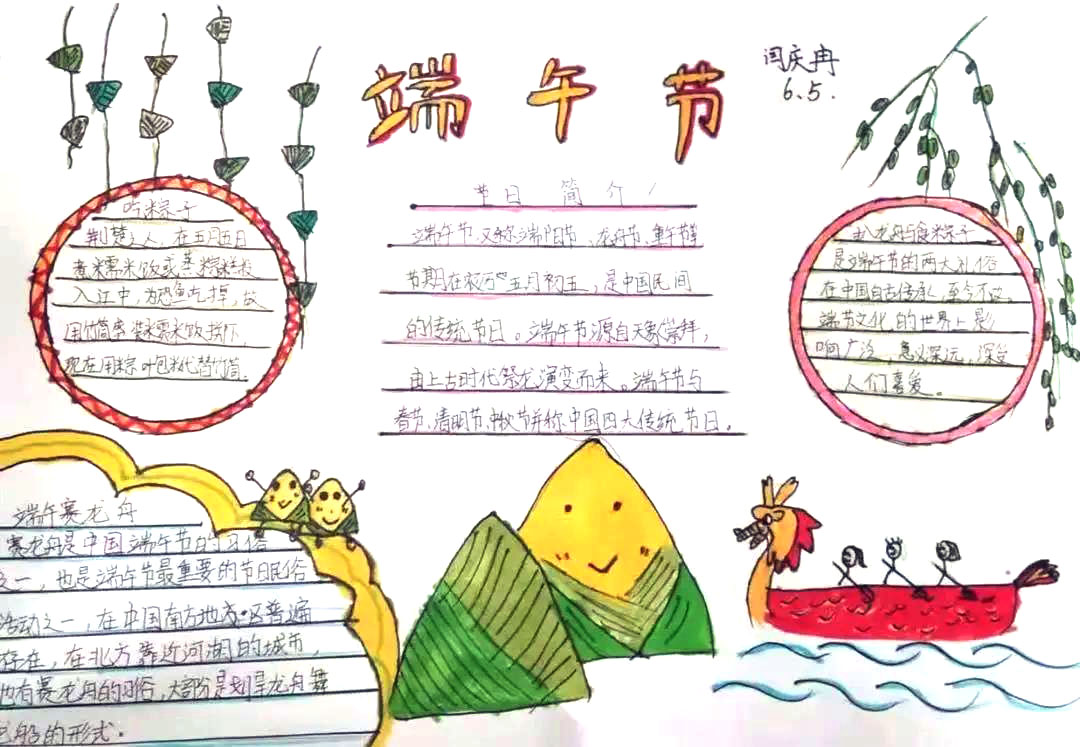 端午节
闫庆冉
6.5.
吃粽子
荆楚之人,在五月五日
煮糯米饭或蒸粽糕投
入江中,为恐鱼吃掉,故
用竹筒盛装糯米饭掷下,
现在用粽叶包米代替竹筒.
节日简介
端午节,又称端阳节、龙舟节、重午节等
节期在农历五月初五,是中国民间
的传统节日。端午节源自天象崇拜,
由上古时代祭龙演变而来。端午节与
春节、清明节、中秋节并称中国四大传统节日。
龙舟与食粽子
是端午节的两大礼俗
在中国自古传承,至今不
端节文化的世界上影
响广泛,意义深远,深受
人们喜爱。
端午赛龙舟
赛龙舟是中国端午节的习俗
之一,也是端午节最重要的节日民俗
活动之一,在中国南方地区普遍
存在,在北方靠近河湖的城市,
也有赛龙舟的习俗,大部分是划旱龙舟舞
龙船的形式.